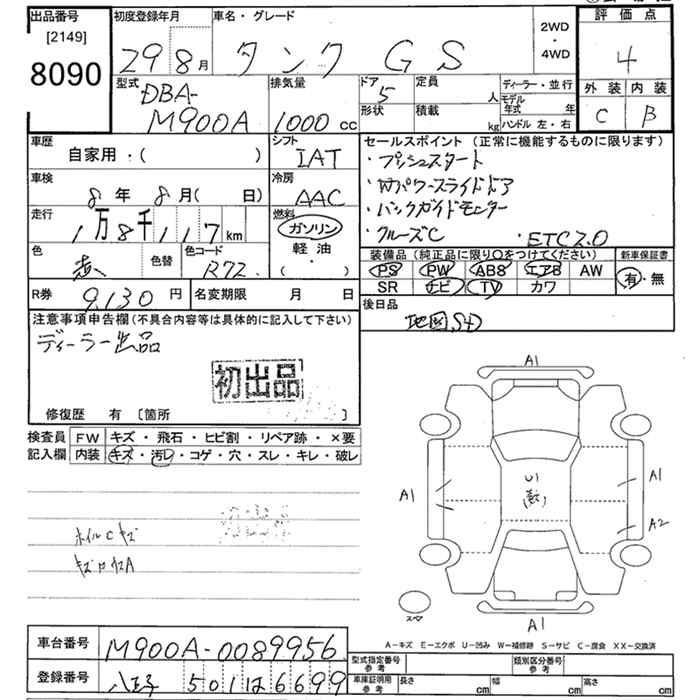 出品番号 初度登録年月 車名・グレード 2WD・4WD 評価点
[2149]
8090 29 8月 タンク GS 4
型式 排気量 ドア 定員 ディーラー・並行 外装 内装
DBA- 5 人 モデル年式 年 C B
M900A 1000 cc 形状 積載 kg ハンドル 左・右
車歴 シフト セールスポイント (正常に機能するものに限ります)
自家用・( ) IAT ・プッシュスタート
車検 8年 8月( 日) 冷房 AAC ・Wパワースライドドア
走行 1万8千117km 燃料 ガソリン ・バックガイドモニター
軽油 ・クルーズC ・ETC2.0
色 赤 色替 色コード R72 ・( ) 装備品 (純正品に限り○をつけてください) 新車保証書
PS PW ABS エアB AW 有・無
R券 9,130円 名変期限 月 日 SR ナビ TV カワ
注意事項申告欄(不具合内容等は具体的に記入して下さい) 後日品
ディーラー出品 地図SD
初出品
修復歴 有 [箇所 ]
検査員 FW キズ・飛石・ヒビ割・リペア跡・×要
記入欄 内装 キズ・汚レ・コゲ・穴・スレ・キレ・破レ
A1
A1 U1 A1
A2
ホイルCキズ
A1
スペア
A-キズ E-エクボ U-凹み W-補修跡 S-サビ C-腐食 XX-交換済
車台番号 M900A-0089956 型式指定番号 参考 類別区分番号 参考
登録番号 八王子 501 は 6699 車庫証明用 参考 長さ cm 幅 cm 高さ cm